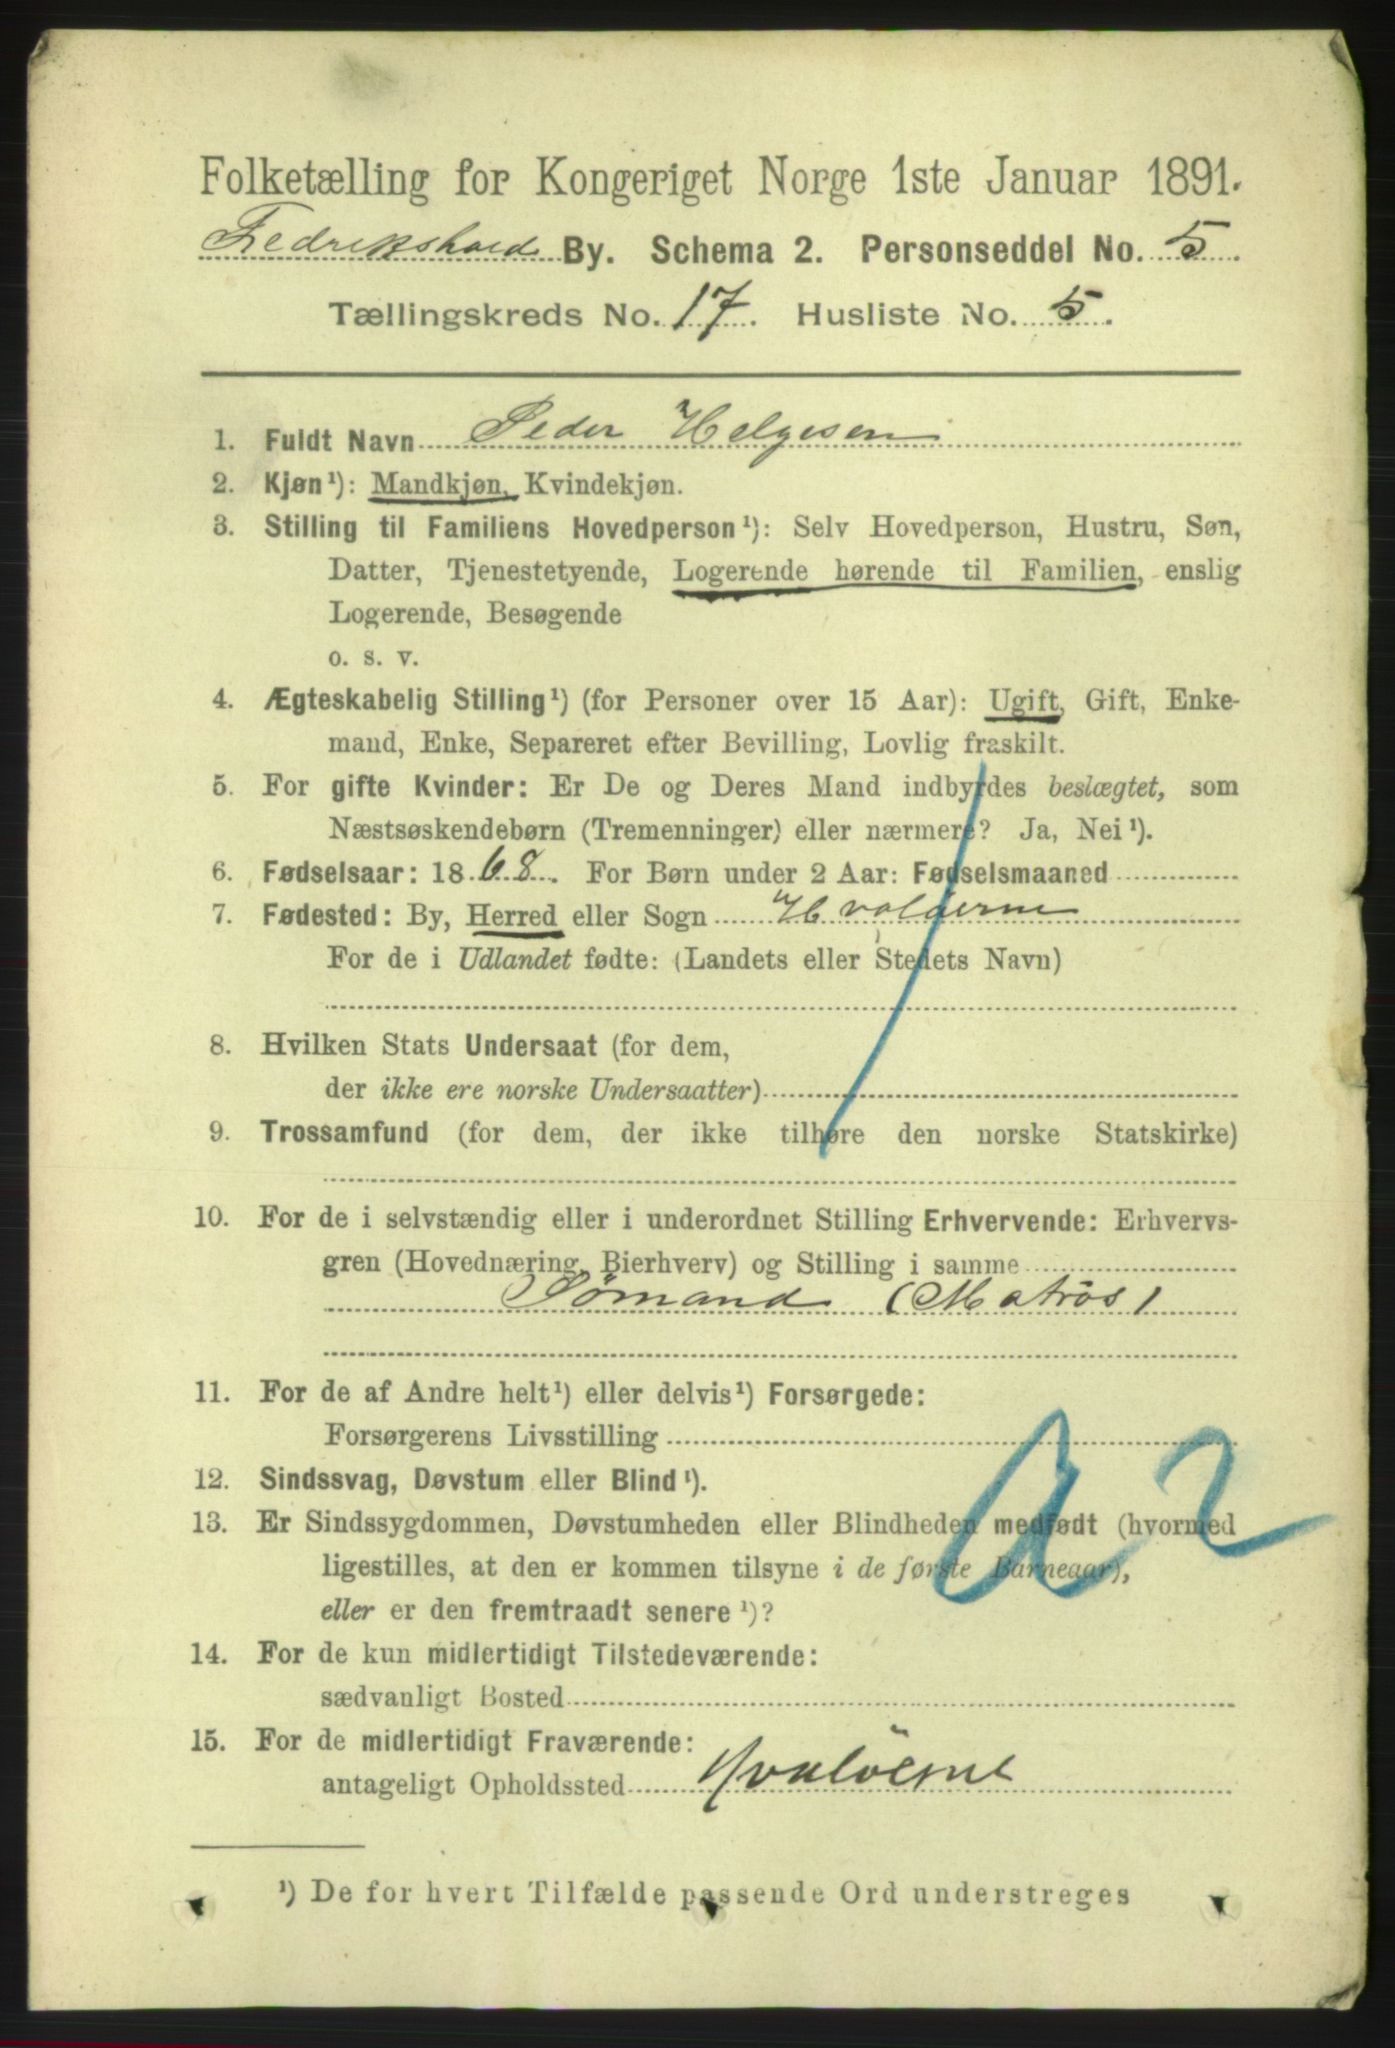 Folketælling for Kongeriget Norge 1ste Januar 1891.
Fredrikshald By. Schema 2. Personseddel No. 5.
Tællingskreds No. 17. Husliste No. 5.
1. Fuldt Navn Peder Helgesen
2. Kjøn¹): Mandkjøn, Kvindekjøn.
3. Stilling til Familiens Hovedperson¹): Selv Hovedperson, Hustru, Søn,
Datter, Tjenestetyende, Logerende hørende til Familien, enslig
Logerende, Besøgende
o. s. v.
4. Ægteskabelig Stilling¹) (for Personer over 15 Aar): Ugift, Gift, Enke-
mand, Enke, Separeret efter Bevilling, Lovlig fraskilt.
5. For gifte Kvinder: Er De og Deres Mand indbyrdes beslægtet, som
Næstsøskendebørn (Tremenninger) eller nærmere? Ja, Nei¹).
6. Fødselsaar: 1868. For Børn under 2 Aar: Fødselsmaaned
7. Fødested: By, Herred eller Sogn Hvaløerne
For de i Udlandet fødte: (Landets eller Stedets Navn)
8. Hvilken Stats Undersaat (for dem,
der ikke ere norske Undersaatter)
9. Trossamfund (for dem, der ikke tilhøre den norske Statskirke)
10. For de i selvstændig eller i underordnet Stilling Erhvervende: Erhvervs-
gren (Hovednæring, Bierhverv) og Stilling i samme
Sømand (Matros)
11. For de af Andre helt¹) eller delvis¹) Forsørgede:
Forsørgerens Livsstilling
12. Sindssvag, Døvstum eller Blind¹).
13. Er Sindssygdommen, Døvstumheden eller Blindheden medfødt (hvormed
ligestilles, at den er kommen tilsyne i de første Barneaar),
eller er den fremtraadt senere¹)?
a2
14. For de kun midlertidigt Tilstedeværende:
sædvanligt Bosted
15. For de midlertidigt Fraværende:
antageligt Opholdssted Hvaløerne
¹) De for hvert Tilfælde passende Ord understreges